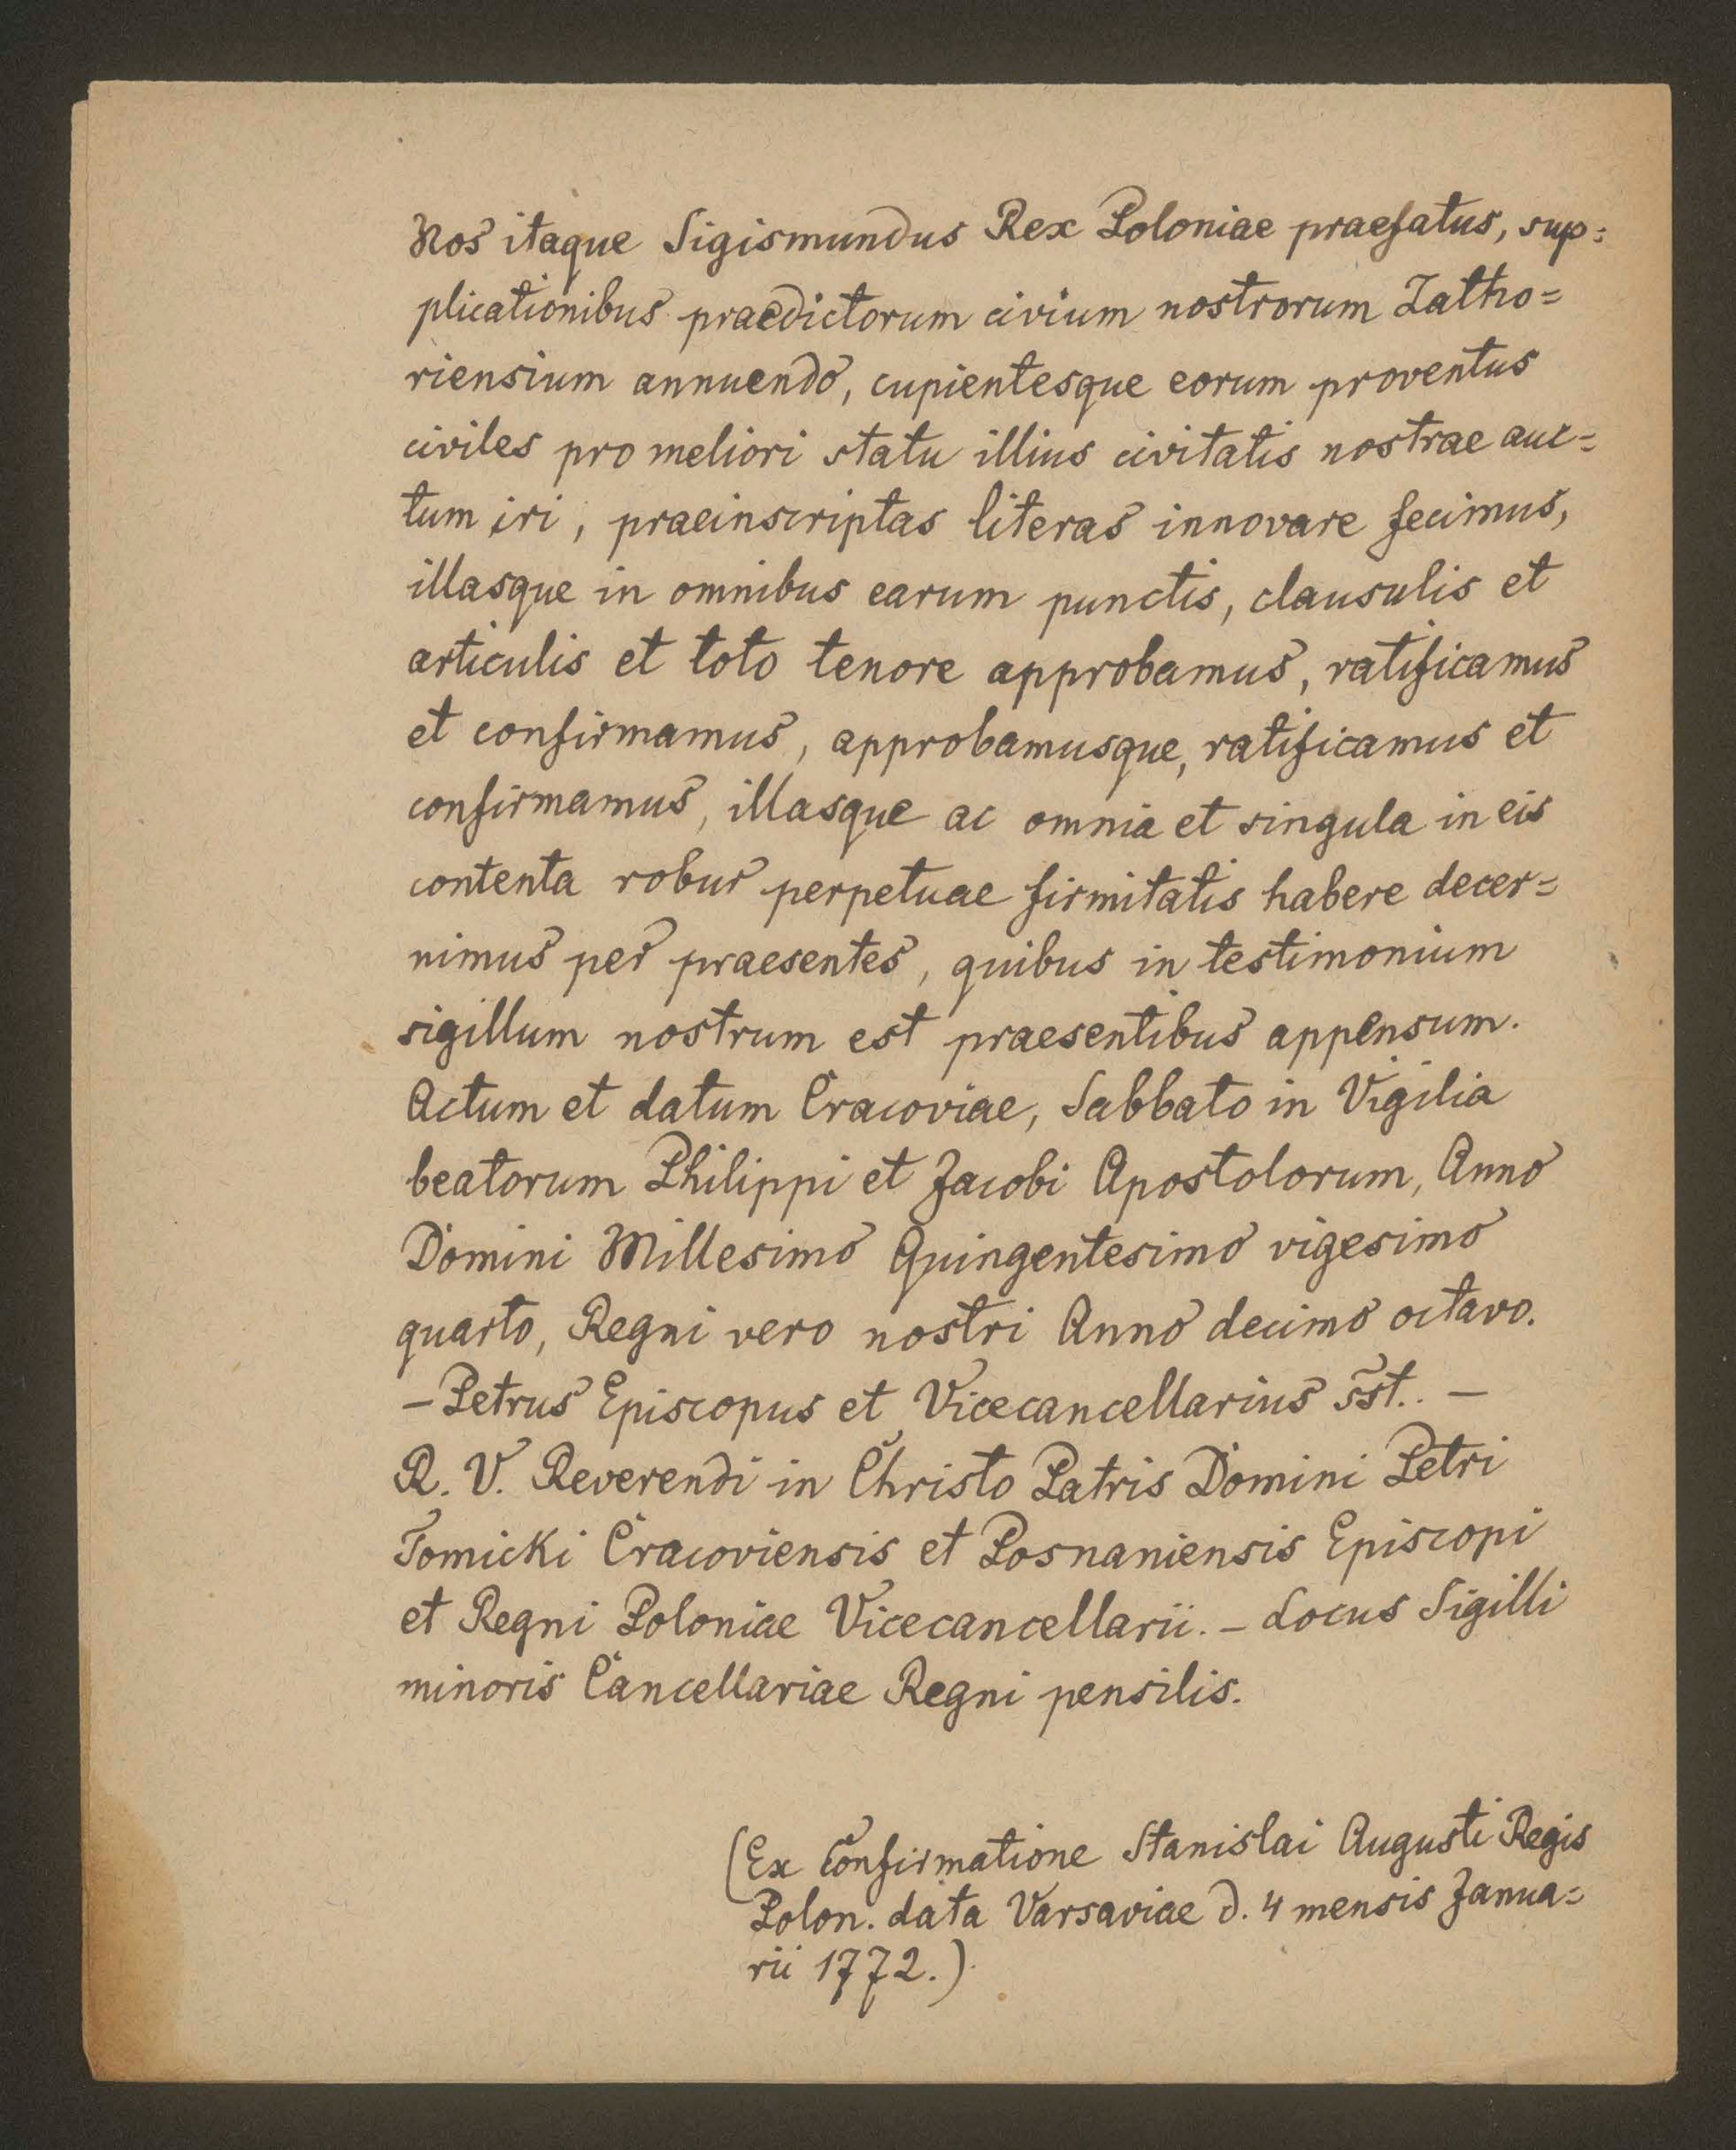 Nos itaque Sigismundus Rex Poloniae praefatus, sup=
plicationibus praedictorum civium nostrorum Zatho=
riensium annuendo, cupientesque eorum proventus
civiles pro meliori statu illius civitatis nostrae auc=
tum iri, praeinscriptas literas innovare fecimus,
illasque in omnibus earum punctis, clausulis et
articulis et toto tenore approbamus, ratificamus
et confirmamus, approbamusque, ratificamus et
confirmamus, illasque ac omnia et singula in eis
contenta robur perpetuae firmitatis habere decer=
nimus per praesentes, quibus in testimonium
sigillum nostrum est praesentibus appensum.
Actum et datum Cracoviae, Sabbato in Vigilia
beatorum Philippi et Jacobi Apostolorum, Anno
Domini Millesimo Quingentesimo vigesimo
quarto, Regni vero nostri Anno decimo octavo.
– Petrus Episcopus et Vicecancellarius sst.. –
R. V. Reverendi in Christo Patris Domini Petri
Tomicki Cracoviensis et Posnaniensis Episcopi
et Regni Poloniae Vicecancellarii. – Locus Sigilli
minoris Cancellariae Regni pensilis.
(Ex Confirmatione Stanislai Augusti Regis
Polon. data Varsaviae d. 4 mensis Janua=
rii 1772.)